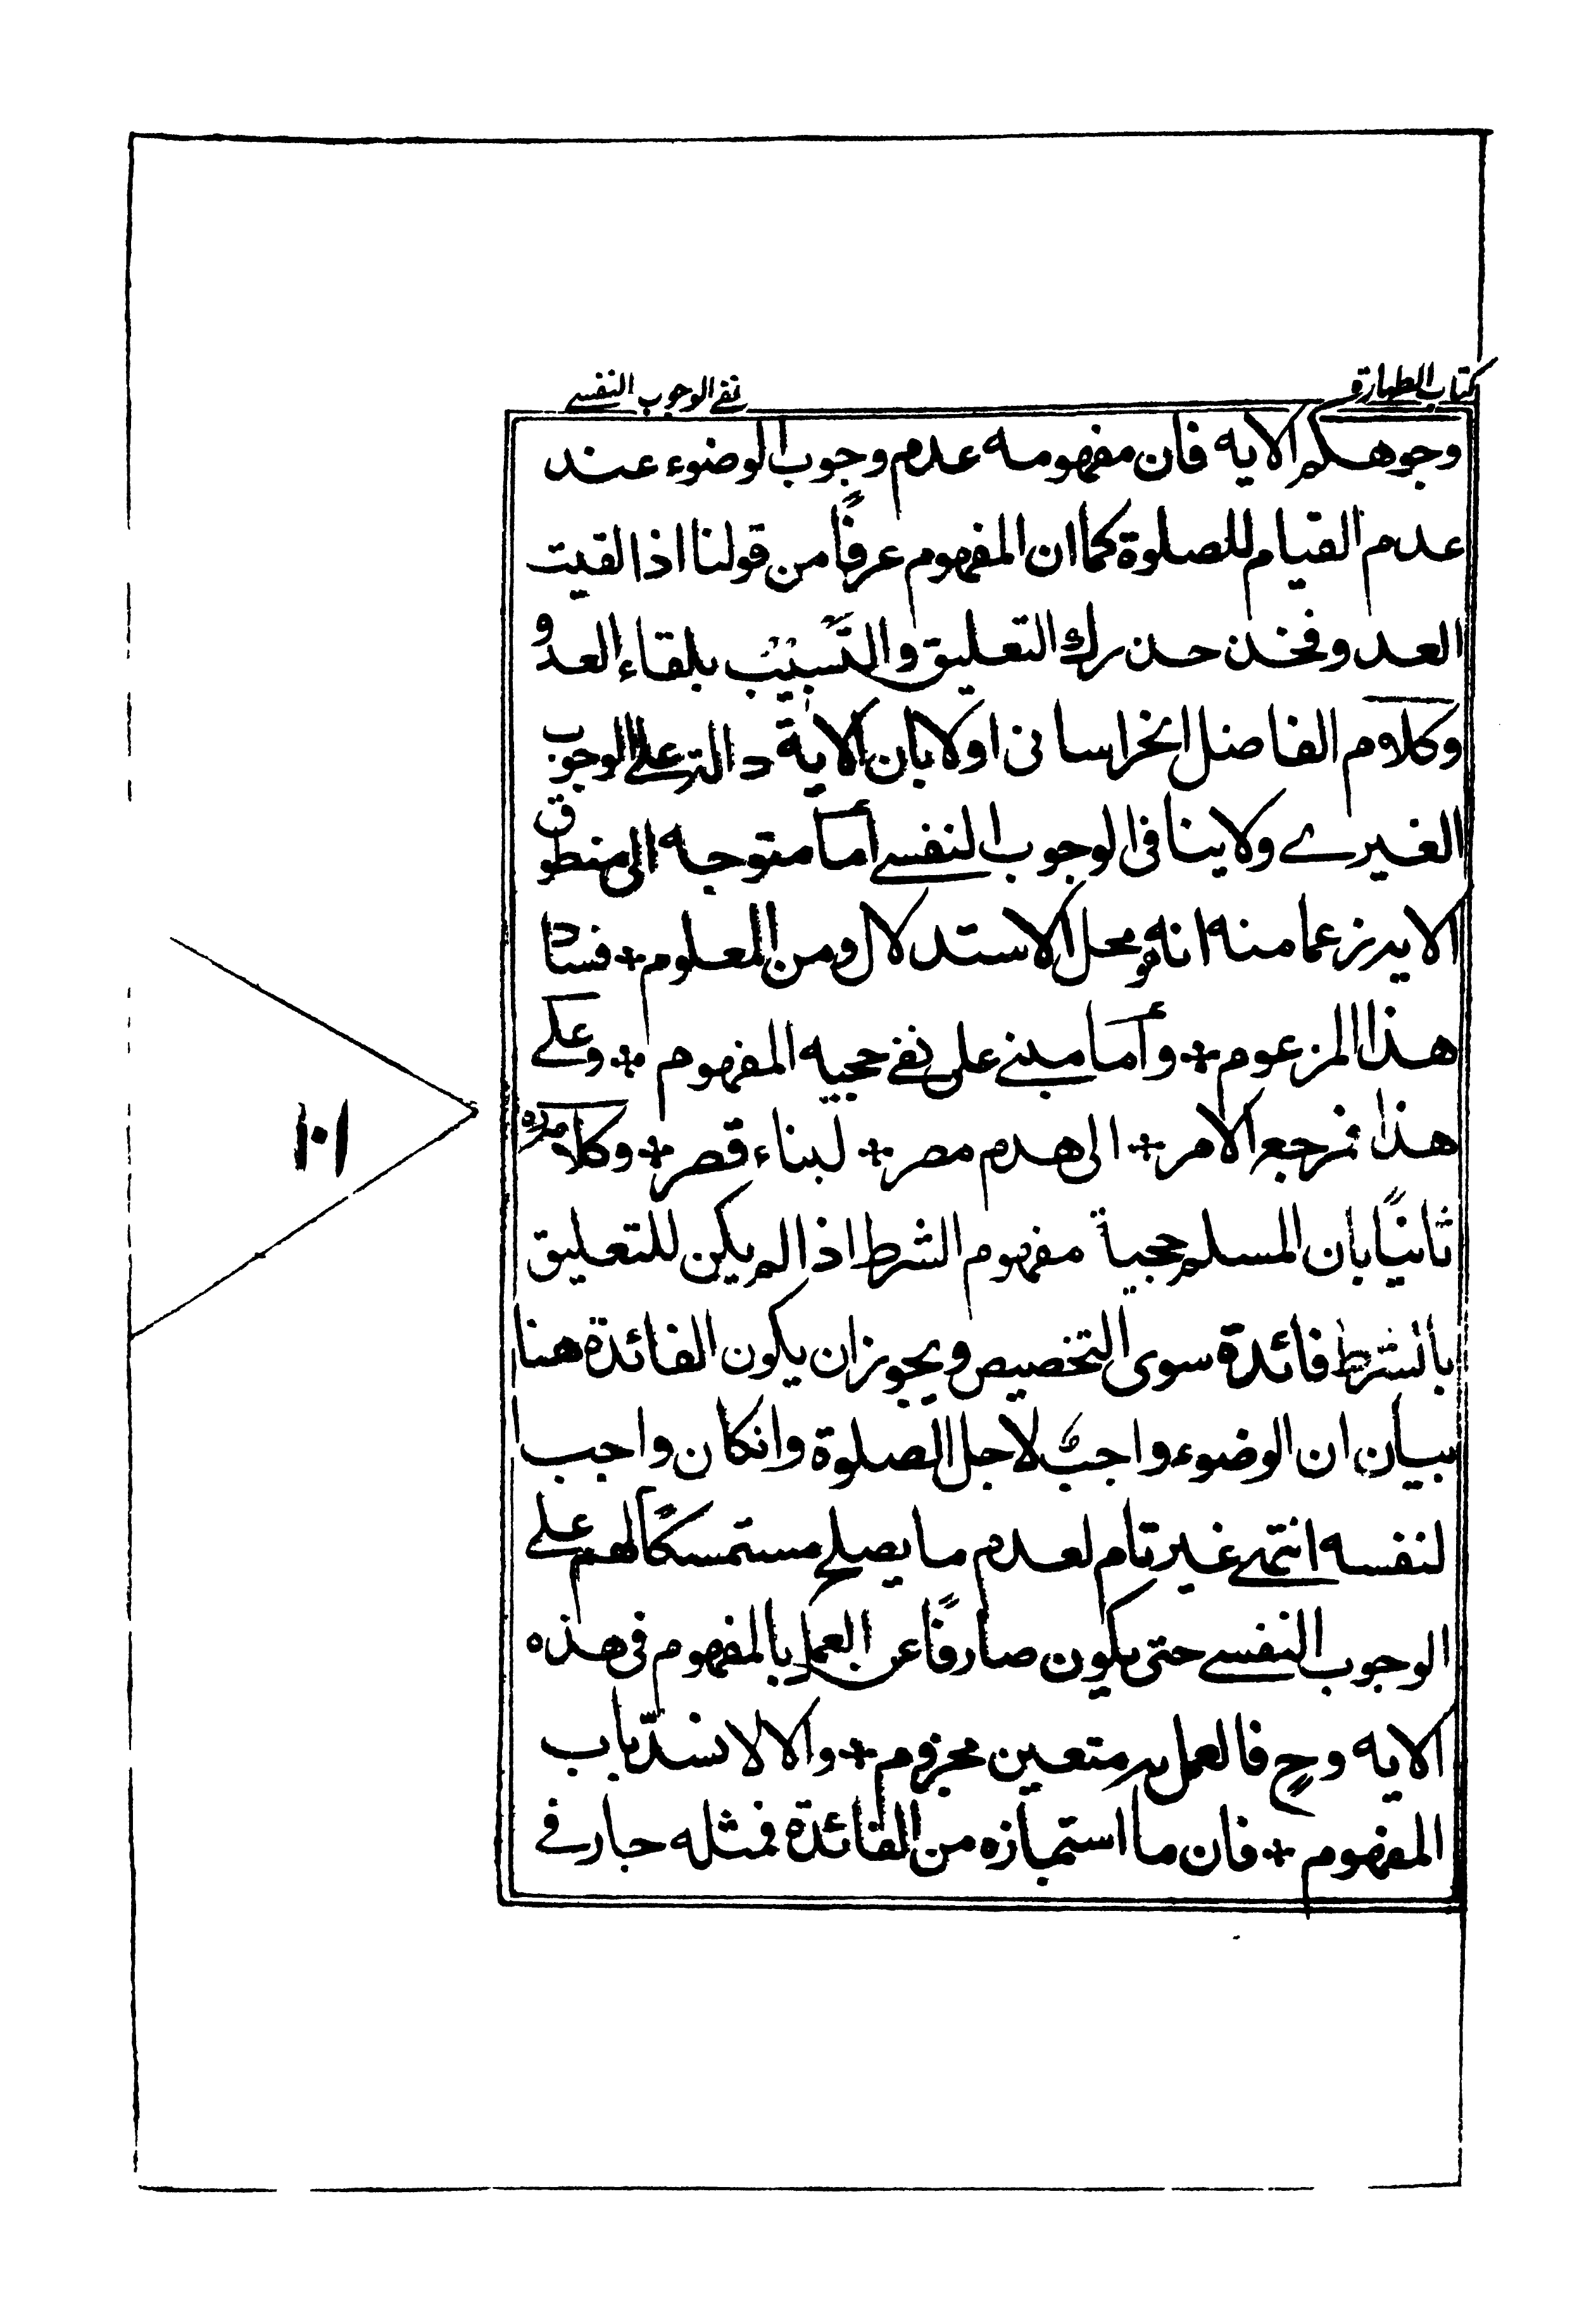 كتاب الطهارة
نفي الوجوب النفسي
وجوهكم الايه فان مفهومه عدم وجوب الوضوء عند
عدم القيام للصلوة كما ان المفهوم عرفًا من قولنا اذا لقيت
العدو فخذ حذرك التعليق والتسبيب بلقاء العدو
وكلام الفاضل الخراسانى اولا بان الاية دالة على الوجوب
الغيرى ولا ينافى الوجوب النفسي أما متوجه الى منطوق
الاية زعما منه انه هو محل الاستدلال ومن المعلوم + فساد
هذا المزعوم + وأما مبني على نفي حجيه المفهوم + وعلى
هذا فمرجع الامر + الى هدم مصر + لبناء قصر + وكلامه
ثانيًا بان المسلم حجية مفهوم الشرط اذا لم يكن للتعليق
بالشرط فائدة سوى التخصيص ويجوز ان يكون الفائدة هنا
بيان ان الوضوء واجبٌ لاجل الصلوة وانكان واجبا
لنفسه انتهى غير تام لعدم ما يصلح مستمسكًا لهم على
الوجوب النفسي حتى يكون صارفًا عن العمل بالمفهوم فى هذه
الايه وح فالعمل به متعين مجزوم + والا لانسدّ باب
المفهوم + فان ما من الفائدة فمثله جار في
١٠١